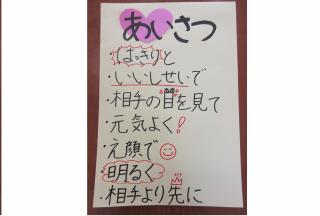 あいさつ
・はっきりと
・いいしせいで
・相手の目を見て
・元気よく!
・え顔で
・明るく
・相手より先に